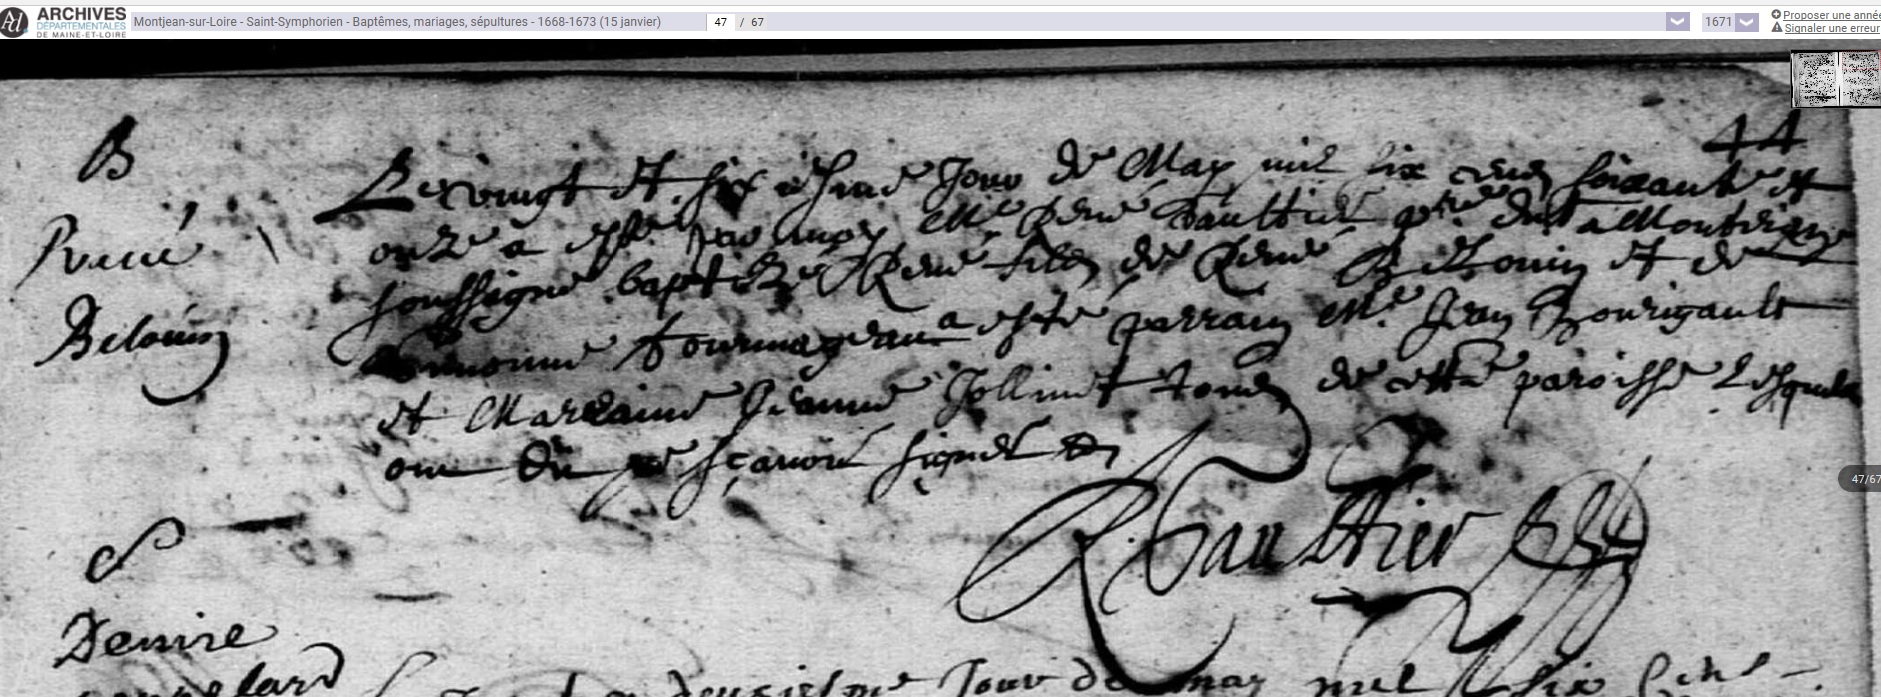 ARCHIVES
DÉPARTEMENTALES
DE MAINE-ET-LOIRE
Montjean-sur-Loire - Saint-Symphorien - Baptêmes, mariages, sépultures - 1668-1673 (15 janvier)
47 / 67
1671
Proposer une anné
Signaler une erreur
44
B
René
Belouin
Le vingt et six iesme Jour de May mil six cens soixante et
onze a esté par moy Me René Gaultier ptre a Montejean
soussigné baptizé René filz de René Belouin et de
tournageau a esté parrain Me Jean Bourigault
et Marraine Jeanne Jollinet tous de cette paroisse Lesquelz
ont dit ne sçavoir signer
R Gaultier
47/67
S
Denire
deusiesme Jour de may mil six cens